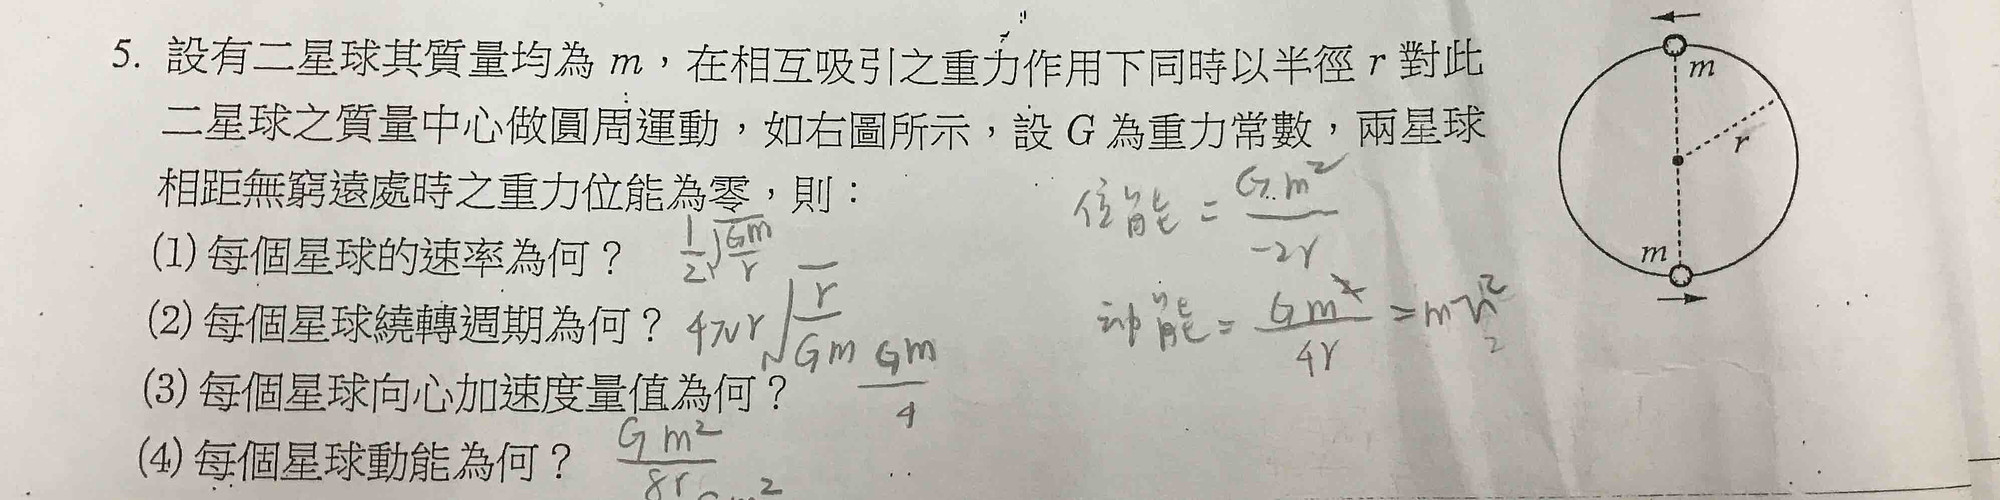 5. 設有二星球其質量均為 m，在相互吸引之重力作用下同時以半徑 r 對此
二星球之質量中心做圓周運動，如右圖所示，設 G 為重力常數，兩星球
相距無窮遠處時之重力位能為零，則：
(1) 每個星球的速率為何？ 1/2 √(Gm/r)
(2) 每個星球繞轉週期為何？ 4πr √(r/Gm)
(3) 每個星球向心加速度量值為何？ Gm/4
(4) 每個星球動能為何？ Gm²/8r
位能 = Gm²/-2r
動能 = Gm²/4r =
m
r
m